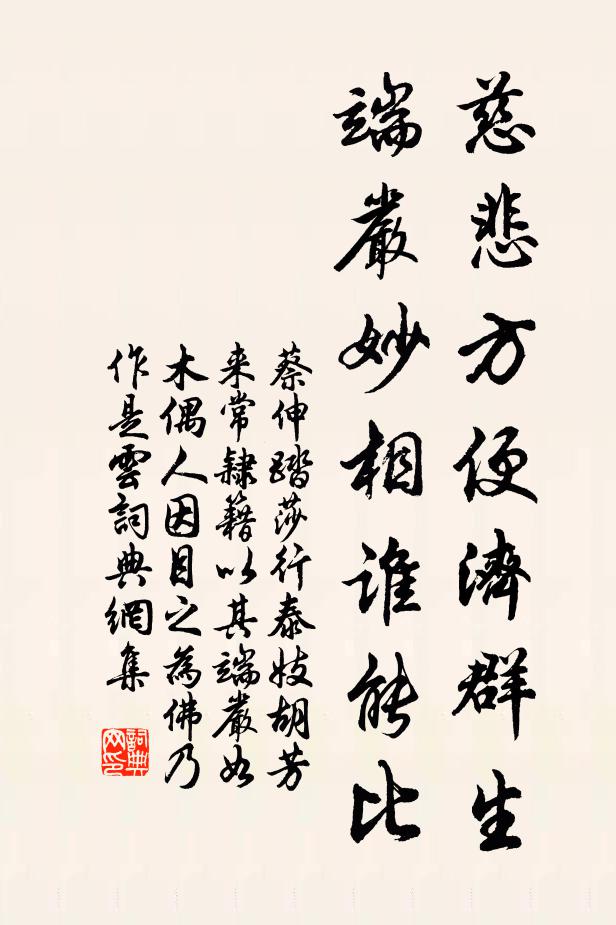 慈悲方便濟群生
端嚴妙相誰能比
蔡伸踏莎行泰妓胡芳
来常隸籍以其端嚴如
木偶人因目之為佛乃
作是雲詞典網集
詞典网印